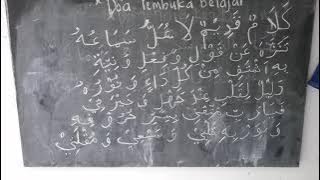 * Doa Pembuka belajar
كَلَامٌ قَدِيْمٌ لَا يُمَلُّ سَمَاعُهُ
تَنَزَّهَ عَنْ قَوْلٍ وَفِعْلٍ وَنِيَّةٍ
بِهِ اَشْتَفِيْ مِنْ كُلِّ دَاءٍ وَنُوْرُهُ
دَلِيْلٌ لِقَلْبِيْ عِنْدَ جَهْلٍ وَحَيْرَتِيْ
فَيَارَبِّ مَتِّعْنِيْ بِسِرِّ حُرُوْفِهِ
وَنَوِّرْ بِهِ قَلْبِيْ وَسَمْعِيْ وَمُقْلَتِيْ